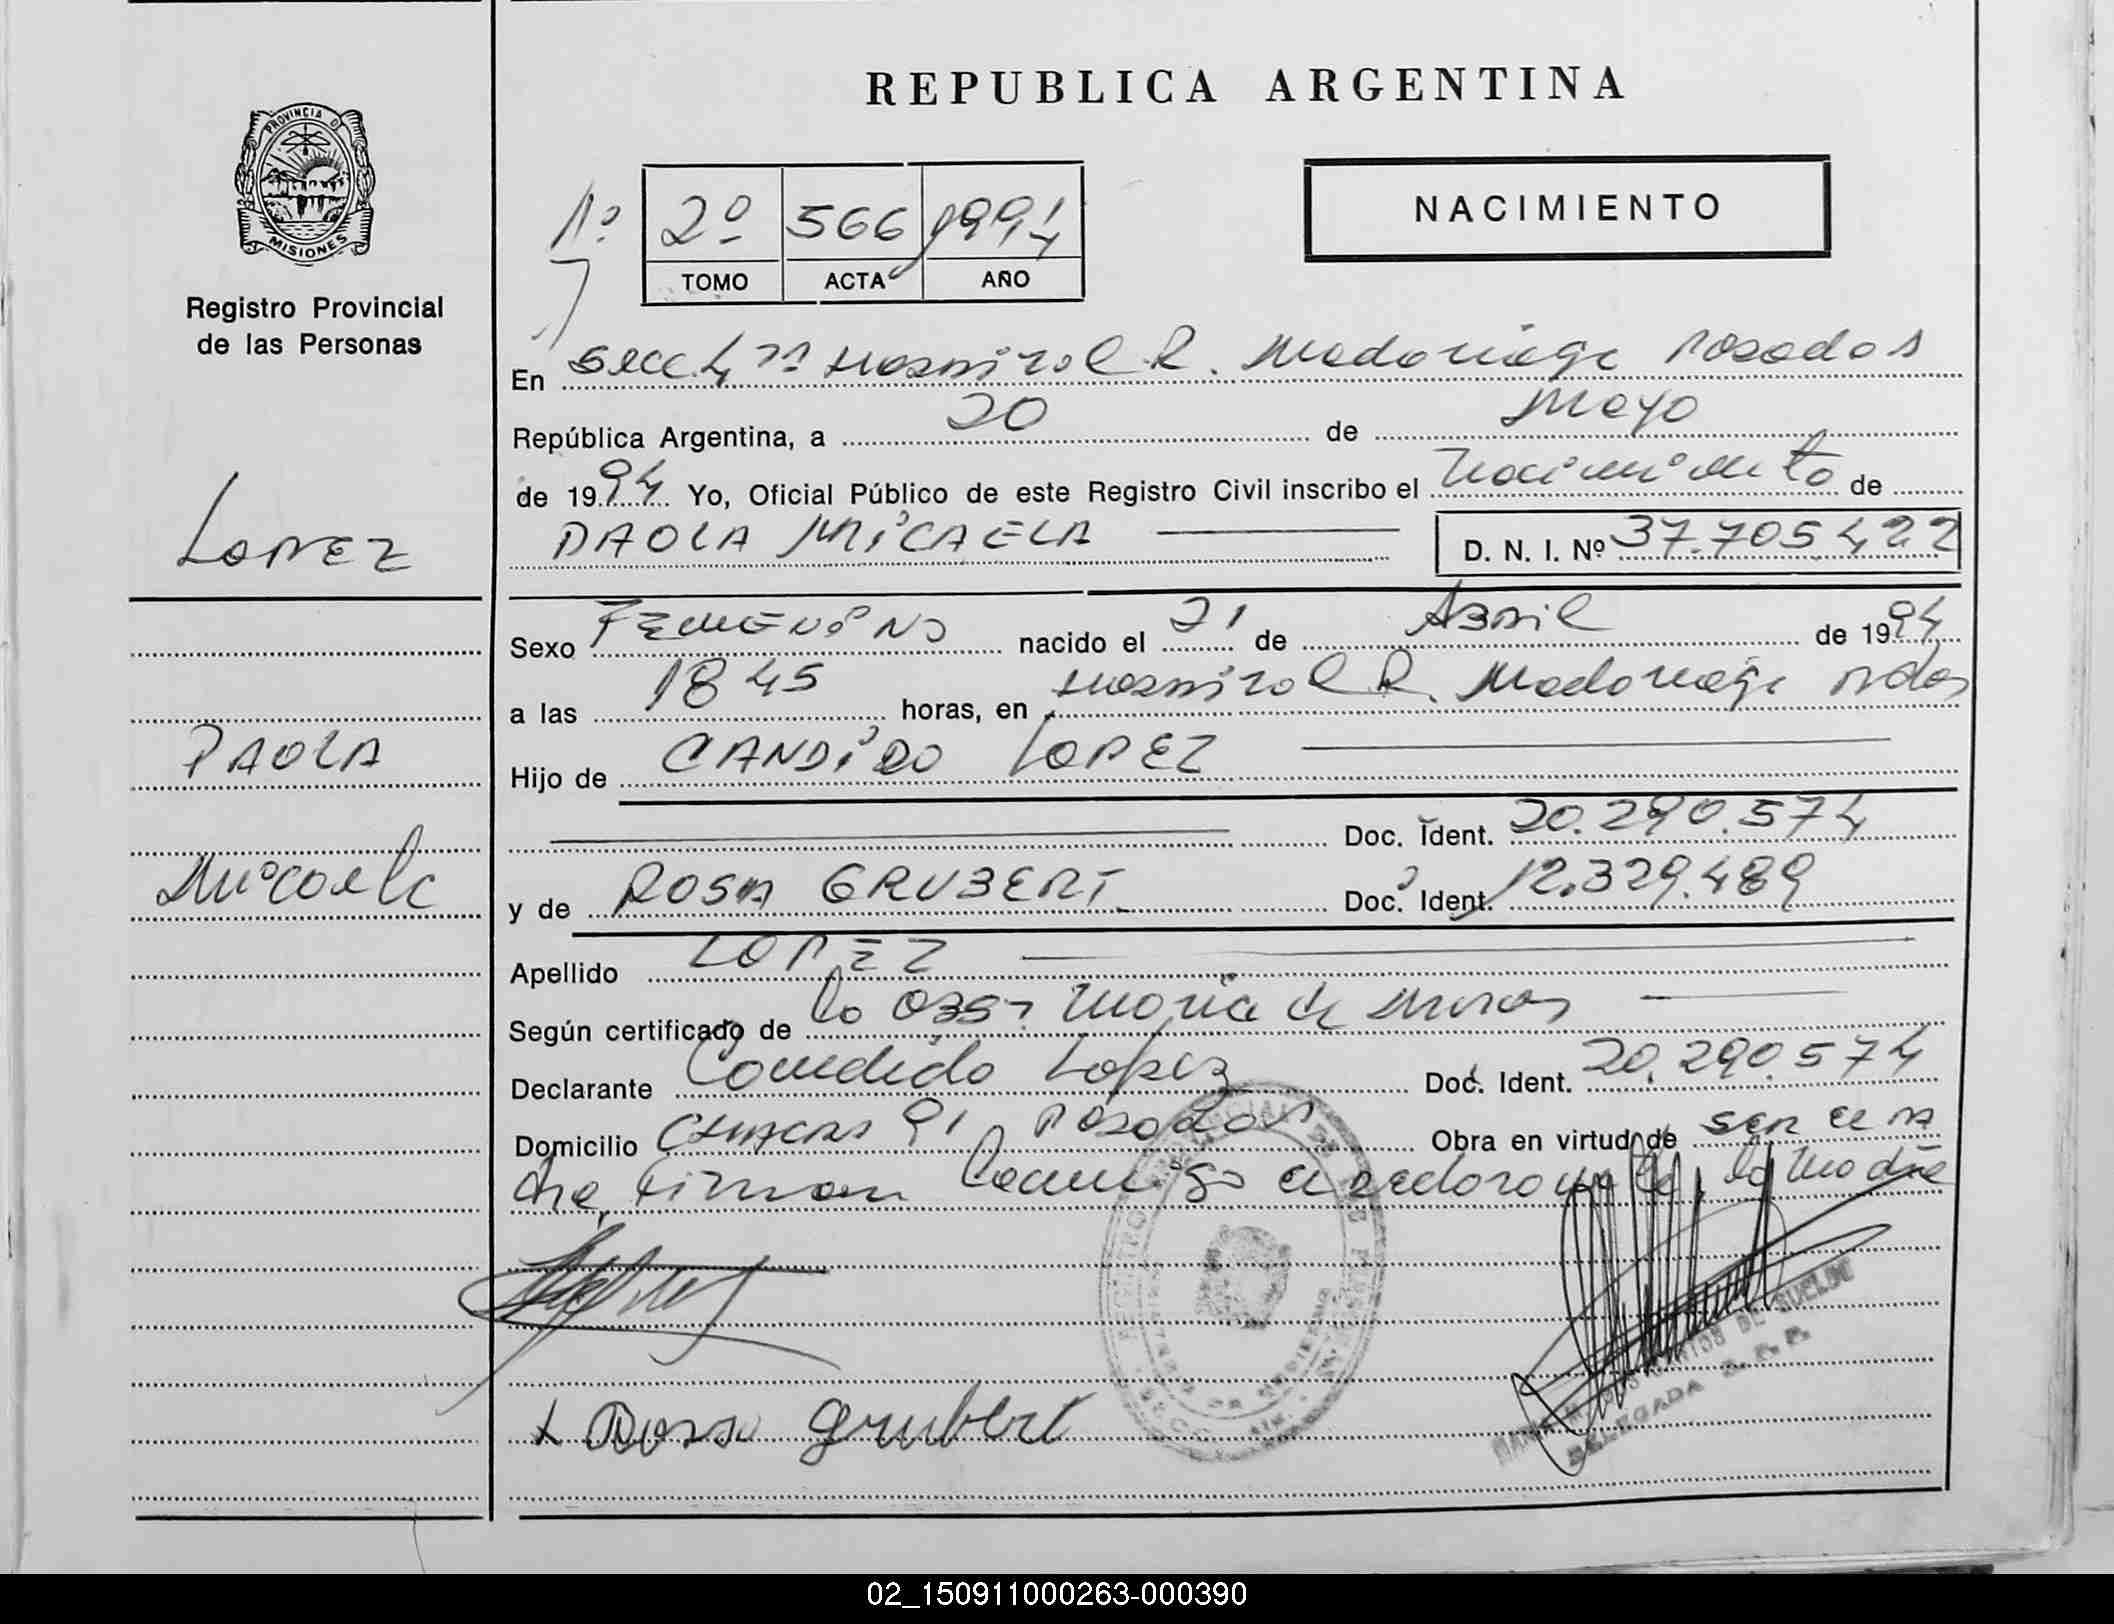 REPUBLICA ARGENTINA
PROVINCIA D
MISIONES
Registro Provincial
de las Personas
NACIMIENTO
Nº 2º 566 1994
TOMO ACTA AÑO
En Secc. 4ª Hospital R. Madariaga Posadas
República Argentina, a 20 de Mayo
de 1994 Yo, Oficial Público de este Registro Civil inscribo el Nacimiento de
PAOLA MICAELA D. N. I. Nº 37.705.422
LOPEZ
Sexo FEMENINO nacido el 21 de Abril de 1994
a las 18 45 horas, en Hospital R. Madariaga Pdas
PAOLA
Hijo de CANDIDO LOPEZ
Doc. Ident. 20.290.574
Micaela
y de ROSA GRUBERT Doc. Ident. 12.329.489
Apellido LOPEZ
Según certificado de la Obst. Maria de
Declarante Candido Lopez Doc. Ident. 20.290.574
Domicilio CHACRA 91 Posadas Obra en virtud de ser el pa
dre, Firman Conmigo el declarante, la Madre
Rosa Grubert
DELEGADA R. P. P.
02_150911000263-000390